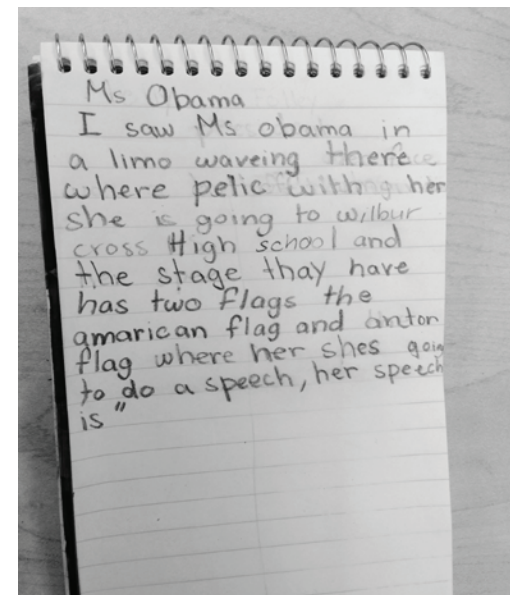 Ms Obama
I saw Ms obama in
a limo waveing there
where pelic with her
she is going to wilbur
cross High school and
the stage thay have
has two flags the
amarican flag and anton
flag where her shes goin
to do a speech, her speech
is "